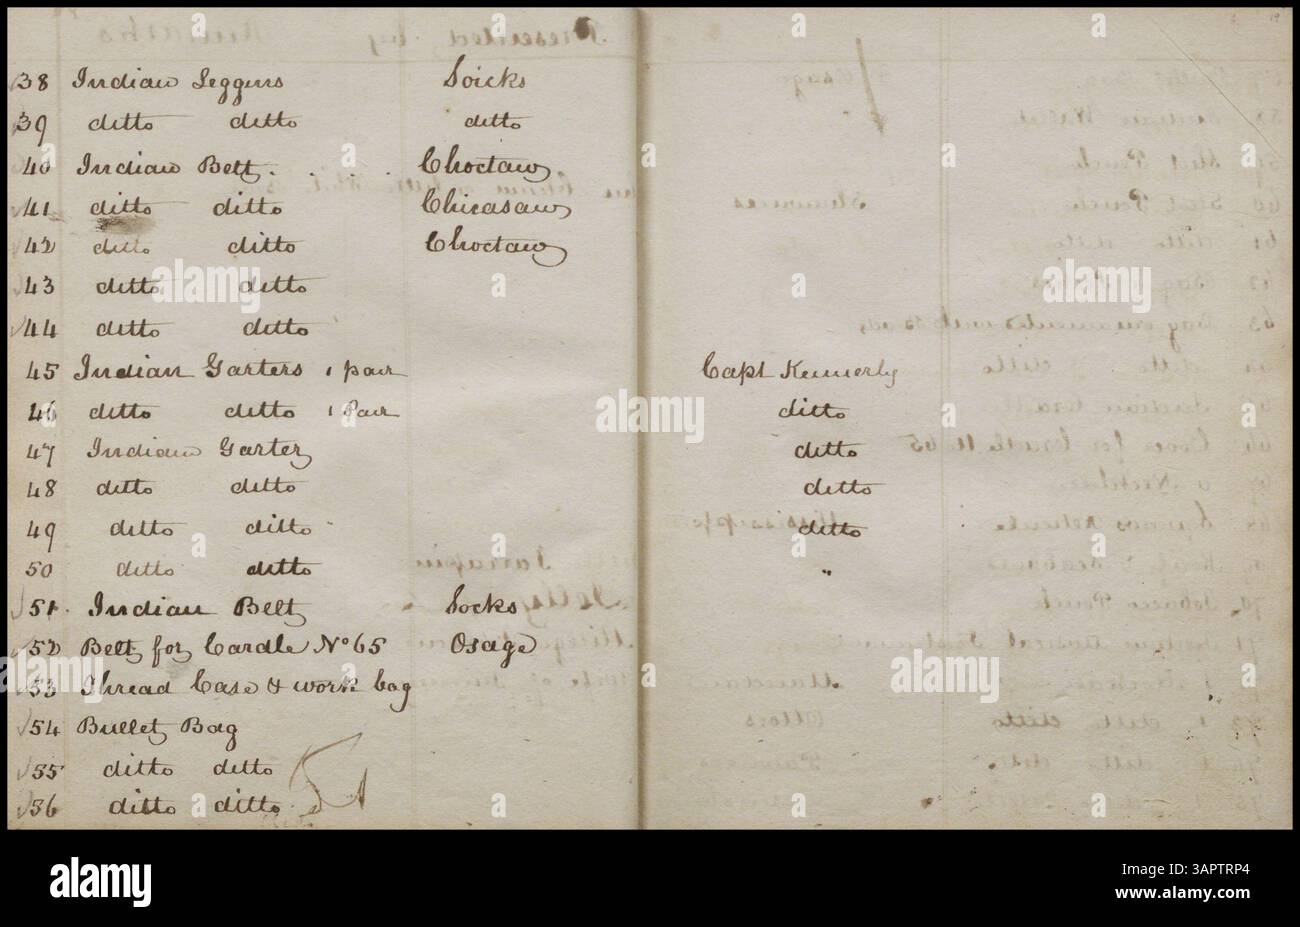 19
38 Indian Leggins Soicks
39 ditto ditto ditto
40 Indian Belt . . . . Choctaw
41 ditto ditto Chicasaw
42 ditto ditto Choctaw
43 ditto ditto
44 ditto ditto
45 Indian Garters 1 pair Capt Kennerly
46 ditto ditto 1 Pair ditto
47 Indian Garter ditto
48 ditto ditto ditto
49 ditto ditto ditto
50 ditto ditto "
51 Indian Belt Socks
52 Belt for Cardle No 65 Osage
53 Thread Case & work bag
54 Bullet Bag
55 ditto ditto
56 ditto ditto
alamy
Image ID: 3APTRP4
www.alamy.com